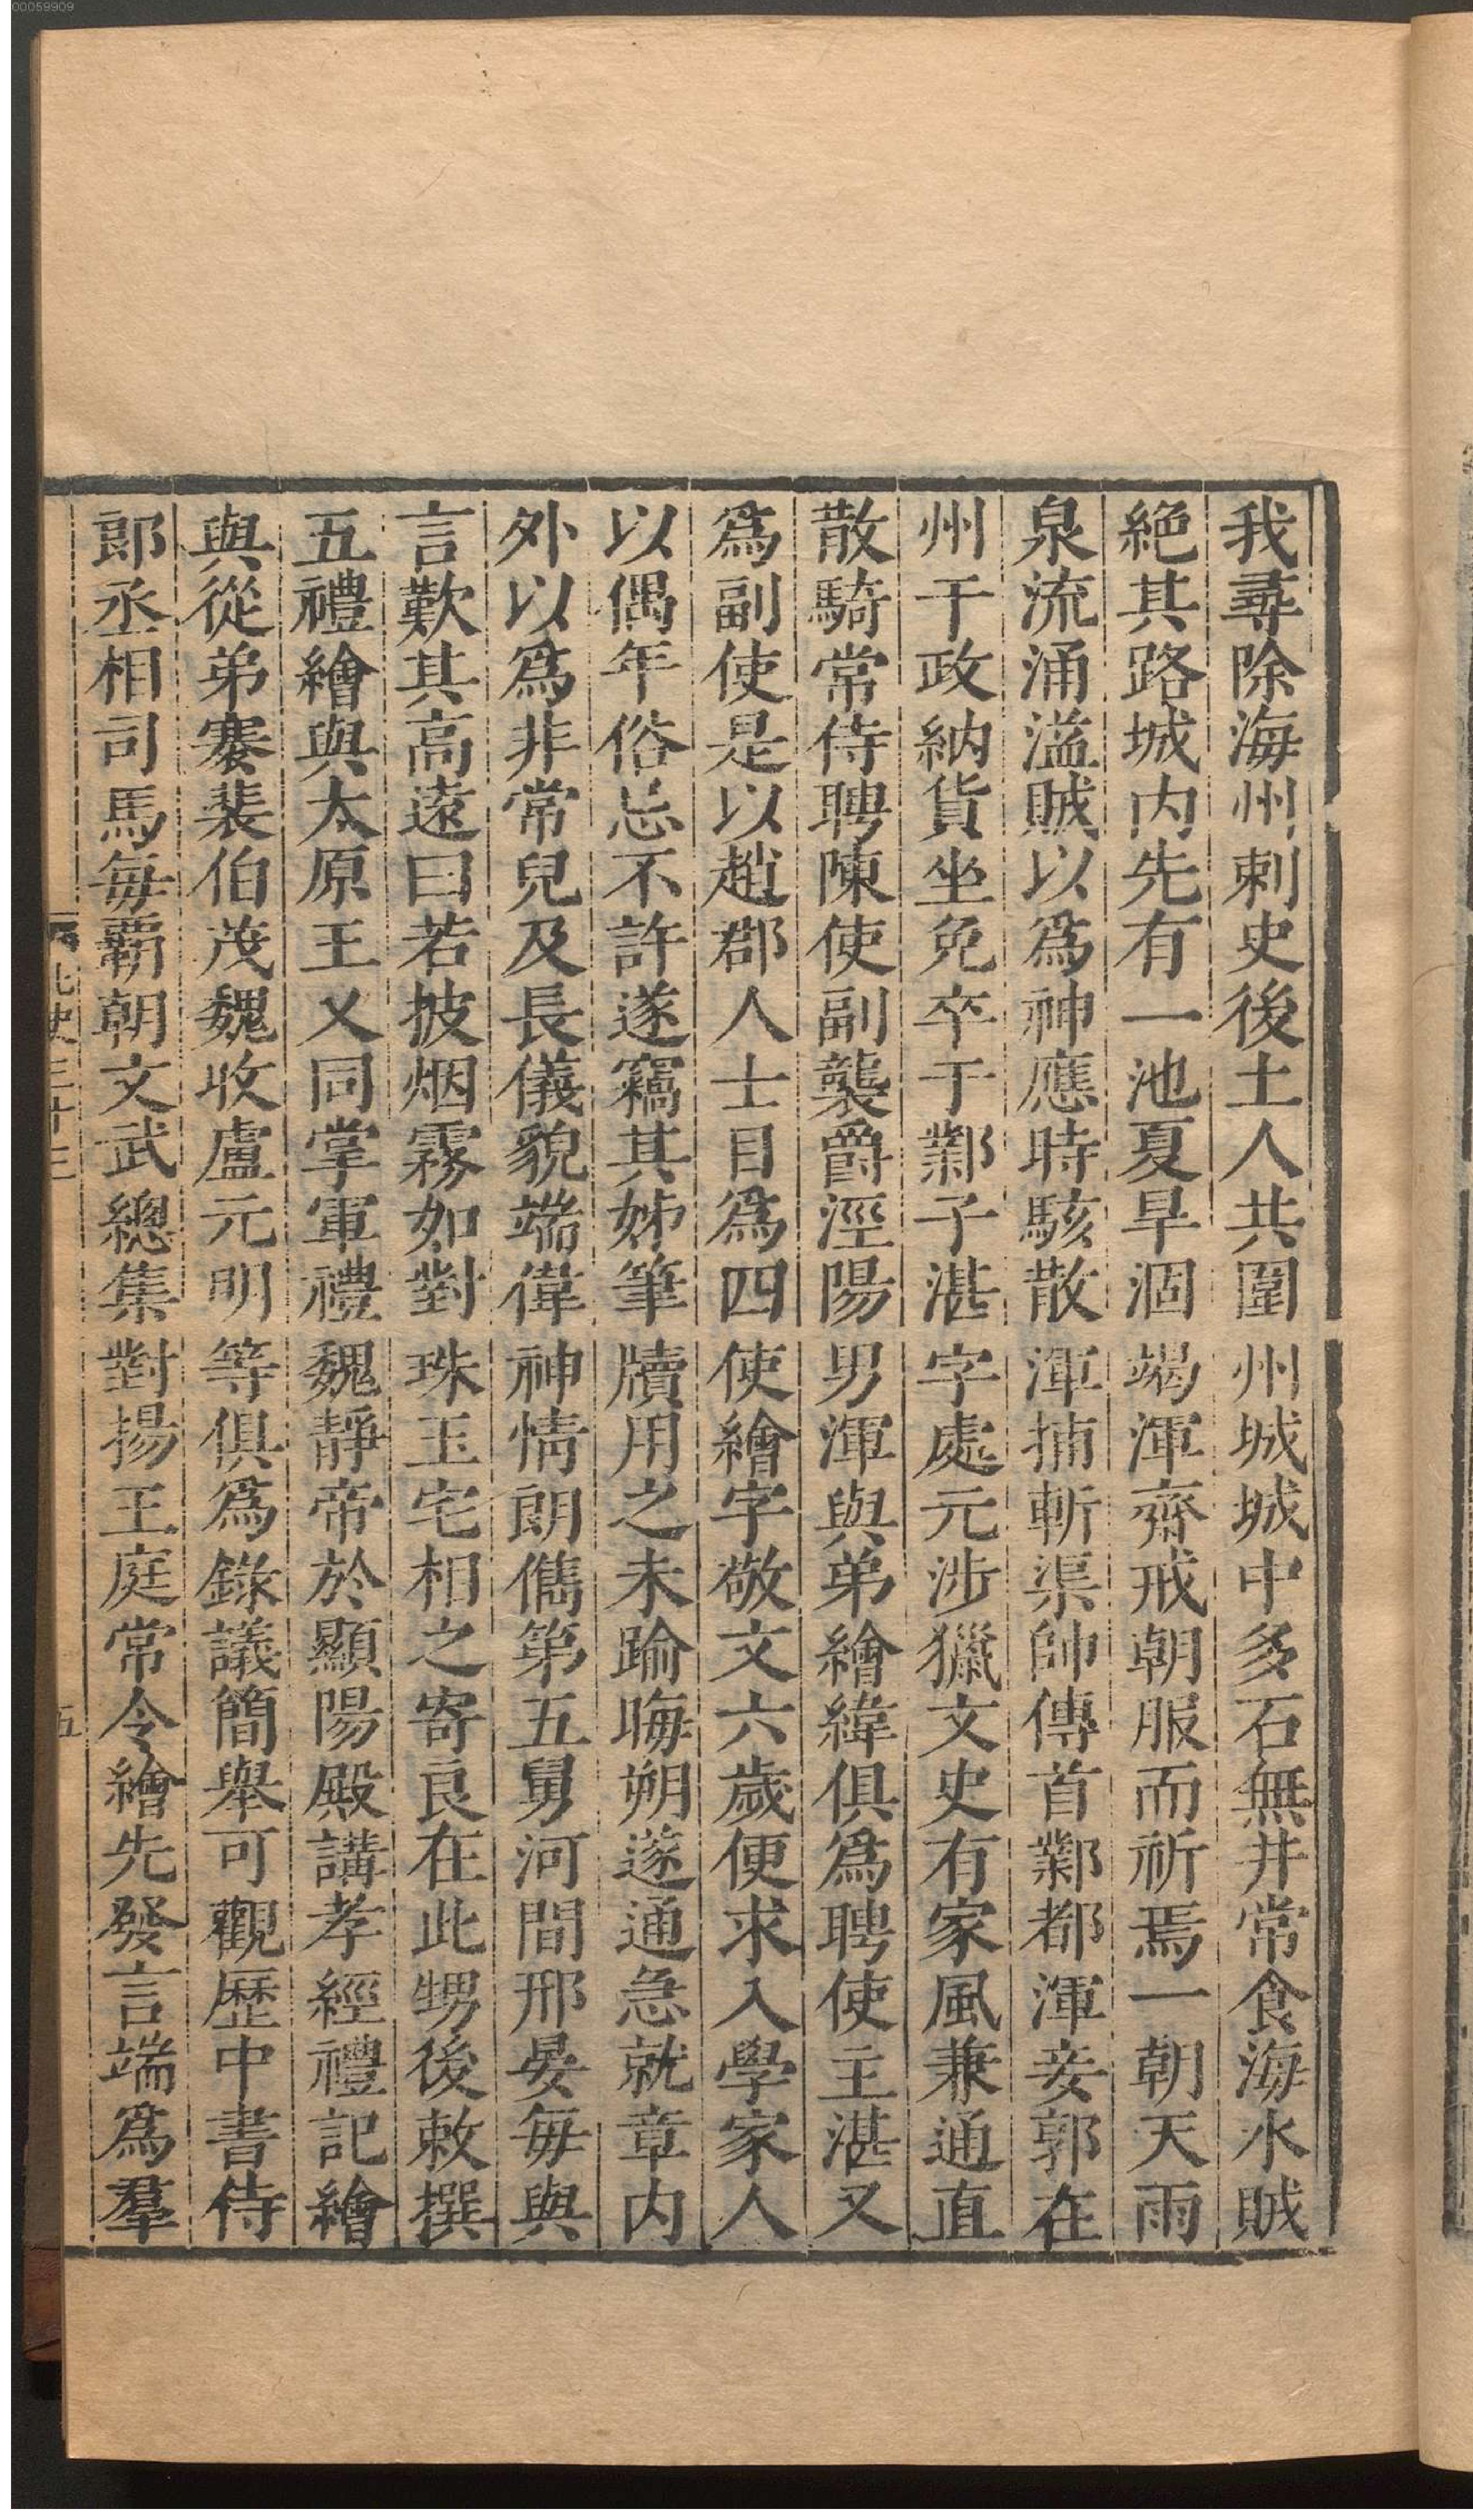 00059909
我尋除海州刺史後土人共圍州城城中多石無井常食海水賊
絶其路城内先有一池夏旱涸竭渾齋戒朝服而祈焉一朝天雨
泉流涌溢賊以爲神應時駭散渾捕斬渠帥傳首鄴都渾妾郭在
州干政納貨坐免卒于鄴子湛字處元涉獵文史有家風兼通直
散騎常侍聘陳使副襲爵涇陽男渾與弟繪緯俱爲聘使主湛又
爲副使是以趙郡人士目爲四使繪字敬文六歲便求入學家人
以偶年俗忌不許遂竊其姊筆牘用之未踰晦朔遂通急就章内
外以爲非常兒及長儀貌端偉神情朗儁第五舅河間邢晏每與
言歎其高遠曰若披烟霧如對珠玉宅相之寄良在此甥後敕撰
五禮繪與太原王乂同掌軍禮魏靜帝於顯陽殿講孝經禮記繪
與從弟騫裴伯茂魏收盧元明等俱爲錄議簡舉可觀歷中書侍
郎丞相司馬每霸朝文武總集對揚王庭常令繪先發言端爲羣
北史三十三
五